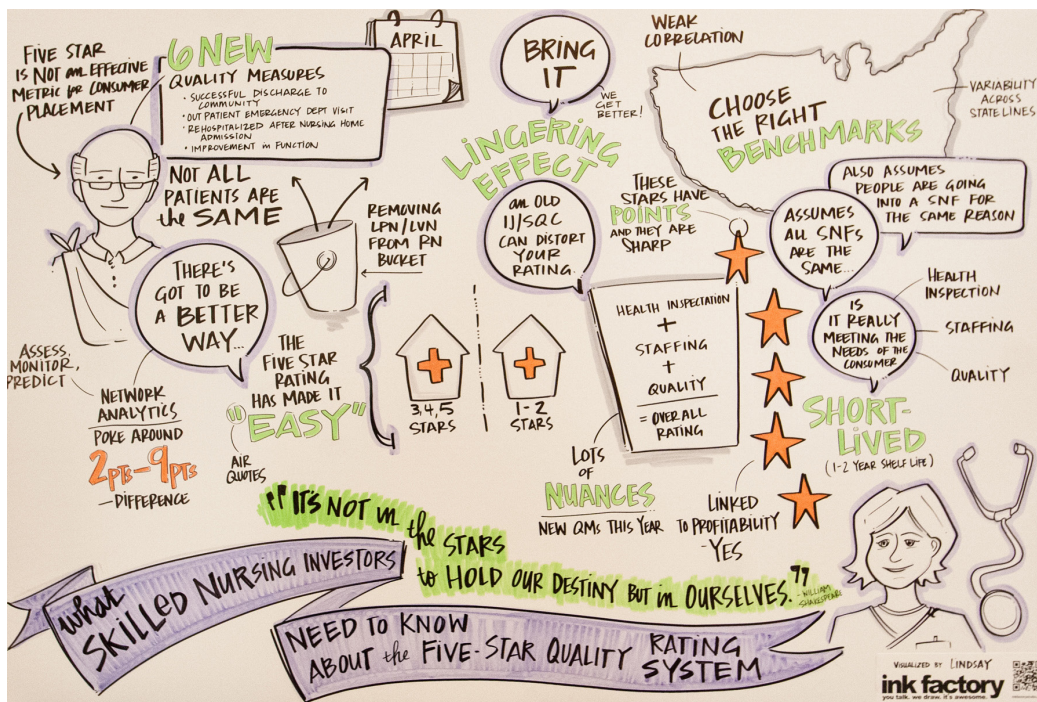 FIVE STAR
IS NOT an EFFECTIVE
METRIC for CONSUMER
PLACEMENT
6 NEW
QUALITY MEASURES
• SUCCESSFUL DISCHARGE TO
COMMUNITY
• OUT PATIENT EMERGENCY DEPT VISIT
• REHOSPITALIZED AFTER NURSING HOME
ADMISSION
• IMPROVEMENT in FUNCTION
APRIL
NOT ALL
PATIENTS ARE
the SAME
REMOVING
LPN/LVN
FROM RN
BUCKET
THERE'S
GOT TO BE
A BETTER
WAY...
ASSESS,
MONITOR,
PREDICT
NETWORK
ANALYTICS
POKE AROUND
2PTS-9PTS
-DIFFERENCE
THE
FIVE STAR
RATING
HAS MADE IT
"EASY"
AIR
QUOTES
3,4,5
STARS
1-2
STARS
BRING
IT
WE
GET
BETTER!
LINGERING
EFFECT
an OLD
IJ/SQC
CAN DISTORT
YOUR
RATING.
WEAK
CORRELATION
CHOOSE
THE RIGHT
BENCHMARKS
VARIABILITY
ACROSS
STATE LINES
THESE
STARS HAVE
POINTS
AND THEY ARE
SHARP
ASSUMES
ALL SNFs
ARE THE
SAME...
ALSO ASSUMES
PEOPLE ARE GOING
INTO A SNF FOR
THE SAME REASON
HEALTH INSPECTATION
+
STAFFING
+
QUALITY
= OVERALL
RATING
IS
IT REALLY
MEETING THE
NEEDS OF THE
CONSUMER
HEALTH
INSPECTION
STAFFING
QUALITY
SHORT-
LIVED
(1-2 YEAR SHELF LIFE)
LOTS
OF
NUANCES
NEW QMS THIS YEAR
LINKED
TO PROFITABILITY
-YES
"IT'S NOT in the STARS
to HOLD OUR DESTINY BUT in OURSELVES."
-WILLIAM
SHAKESPEARE
What
SKILLED NURSING INVESTORS
NEED TO KNOW
ABOUT the FIVE-STAR QUALITY RATING
SYSTEM
VISUALIZED BY LINDSAY
ink factory
you talk. we draw. it's awesome.